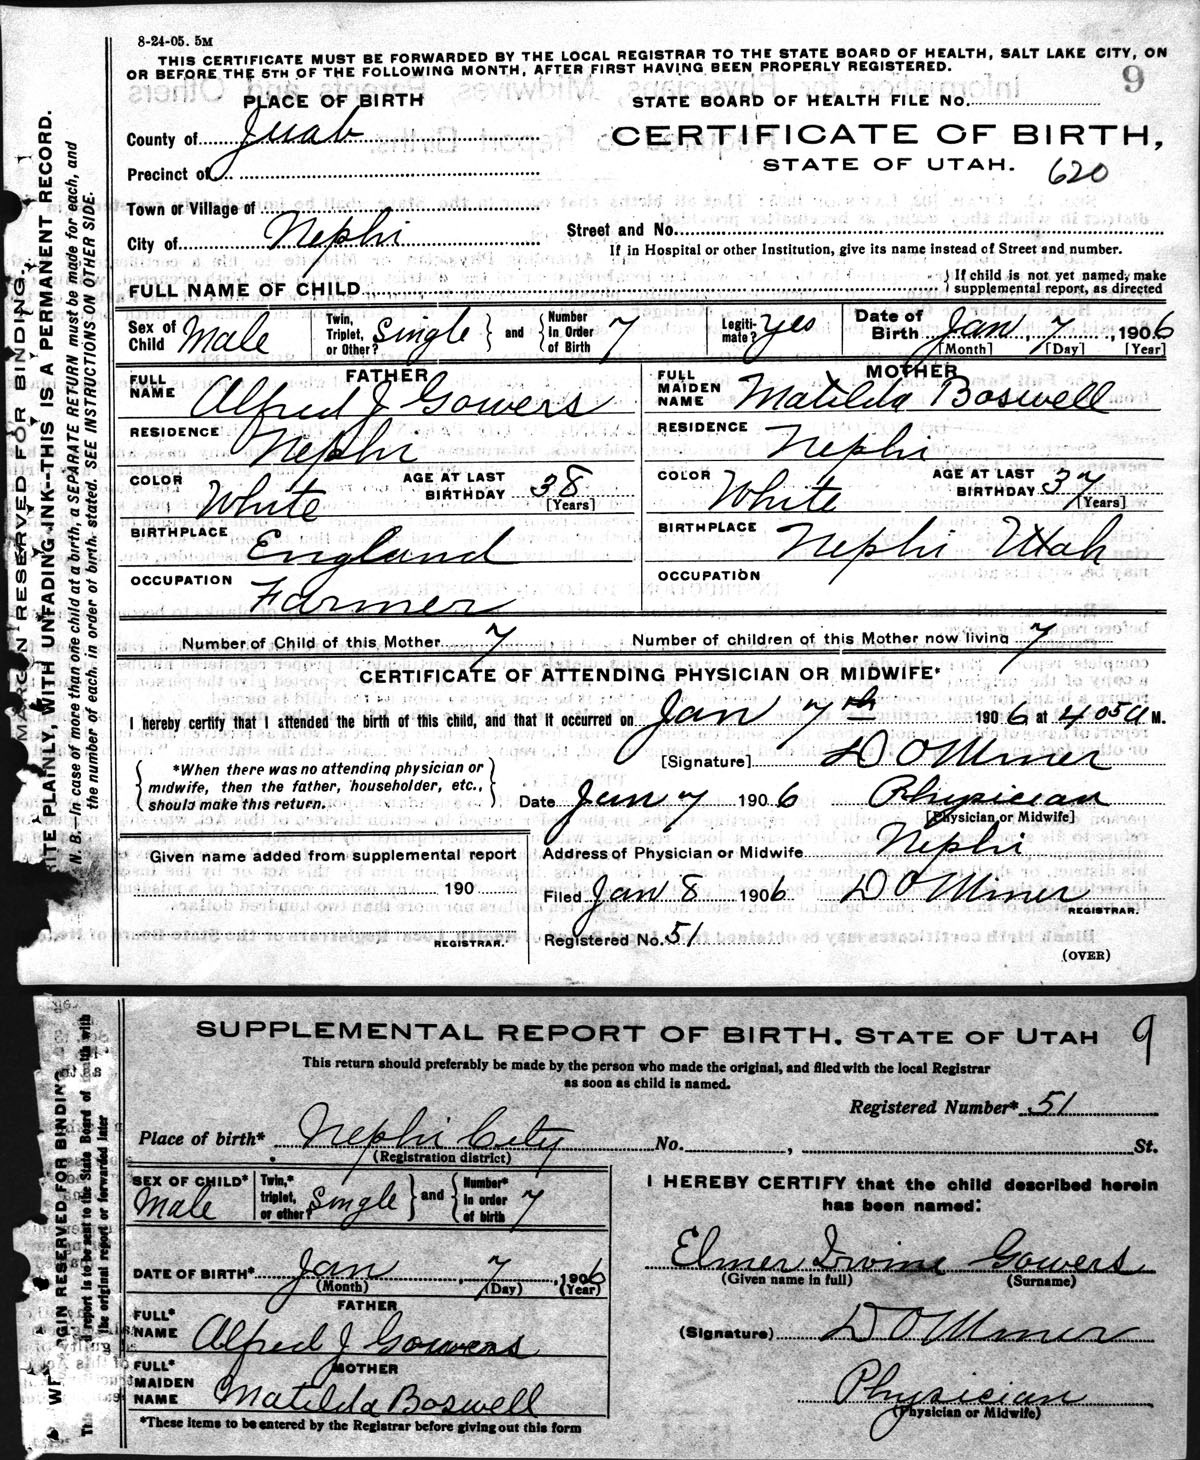 8-24-05. 5M
THIS CERTIFICATE MUST BE FORWARDED BY THE LOCAL REGISTRAR TO THE STATE BOARD OF HEALTH, SALT LAKE CITY, ON
OR BEFORE THE 5TH OF THE FOLLOWING MONTH, AFTER FIRST HAVING BEEN PROPERLY REGISTERED.
9
PLACE OF BIRTH
STATE BOARD OF HEALTH FILE No.
County of Juab
CERTIFICATE OF BIRTH,
STATE OF UTAH. 620
Precinct of
Town or Village of
City of Nephi
Street and No.
If in Hospital or other Institution, give its name instead of Street and number.
FULL NAME OF CHILD
} If child is not yet named, make
supplemental report, as directed
Sex of Child Male
Twin, Triplet, or Other? Single } and { Number in Order of Birth 7
Legitimate? yes
Date of Birth Jan 7, 1906
[Month] [Day] [Year]
FATHER
FULL NAME Alfred J Gowers
RESIDENCE Nephi
COLOR White
AGE AT LAST BIRTHDAY 38
[Years]
BIRTHPLACE England
OCCUPATION Farmer
MOTHER
FULL MAIDEN NAME Matilda Boswell
RESIDENCE Nephi
COLOR White
AGE AT LAST BIRTHDAY 37
[Years]
BIRTHPLACE Nephi Utah
OCCUPATION
Number of Child of this Mother 7
Number of children of this Mother now living 7
CERTIFICATE OF ATTENDING PHYSICIAN OR MIDWIFE*
I hereby certify that I attended the birth of this child, and that it occurred on Jan 7th 1906 at 4 05 a M.
[Signature] D O Miner
{ *When there was no attending physician or
midwife, then the father, householder, etc.,
should make this return. }
Date Jan 7 1906 Physician
[Physician or Midwife]
Given name added from supplemental report
190
REGISTRAR.
Address of Physician or Midwife Nephi
Filed Jan 8 1906 D O Miner
REGISTRAR.
Registered No. 51
(OVER)
MARGIN RESERVED FOR BINDING.
WRITE PLAINLY, WITH UNFADING INK--THIS IS A PERMANENT RECORD.
N. B.—In case of more than one child at a birth, a SEPARATE RETURN must be made for each, and
the number of each, in order of birth, stated. SEE INSTRUCTIONS ON OTHER SIDE.
SUPPLEMENTAL REPORT OF BIRTH, STATE OF UTAH 9
This return should preferably be made by the person who made the original, and filed with the local Registrar
as soon as child is named.
Registered Number* 51
Place of birth* Nephi City No. , St.
(Registration district)
SEX OF CHILD* Male
Twin,* triplet, or other? Single } and { Number* in order of birth 7
DATE OF BIRTH* Jan, 7, 1906
(Month) (Day) (Year)
FATHER
FULL* NAME Alfred J Gowers
MOTHER
FULL* MAIDEN NAME Matilda Boswell
*These items to be entered by the Registrar before giving out this form
I HEREBY CERTIFY that the child described herein
has been named:
Elmer Irvine Gowers
(Given name in full) (Surname)
(Signature) D O Miner
Physician
(Physician or Midwife)
GIN RESERVED FOR BINDING
report is to be sent to the State Board of
the original report or forwarded later